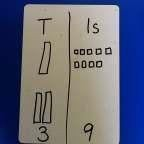 T 1s
3 9